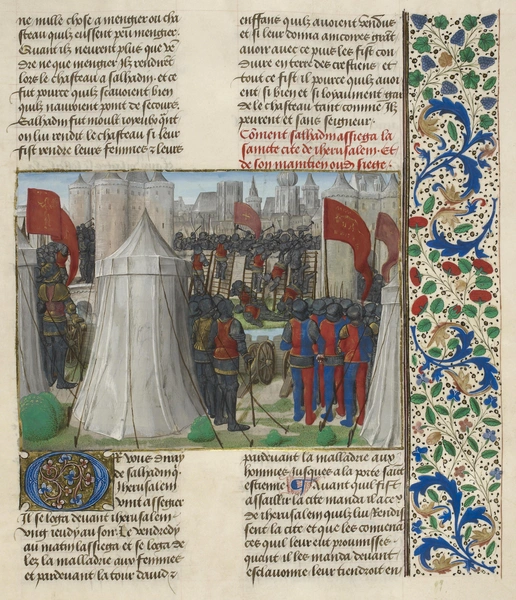 ne mille chose a mengier ou cha
steau quilz eussent peu mengier.
Quant ilz neurent plus que ve
dre ne que mengier Ilz rendirent
lors le chasteau a salhadin. et ce
fut pource quilz scauoient bien
quilz nauroient point de secours.
Salhadin fut moult ioyeulx qnt
on luy rendit le chasteau si leur
fist rendre leurs femmes et leurs
enffans quilz auoient vendus
et si leur donna aincores grāt
auoir auec ce puis les fist con
duire en terre des crestiens. et
tout ce fist il pource quilz auoi
ent si bien et si loyaulment gar
de le chasteau tant comme Ilz
peurent et sans seigneur.
Cōment salhadin assiega la
saincte cite de Iherusalem. Et
de son maintien ou dit siege.
Or vous diray
de salhadin q̄
Iherusalem
vint assegier
Il se loga deuant Iherusalem
vng ieudy au soir. Le vendredy
au matin lassiega et se loga de
lez la malladre aux femmes
et pardeuant la tour dauid et
pardeuant la malladre aux
hommes Jusques a la porte saint
estienne. Auant quil fist
assaillir la cite manda il a ceulx
de Iherusalem quilz luy Rendis
sent la cite et que les conuena
ces quil leur eut prommises
quant il les manda deuant
esclauonne. leur tiendroit en